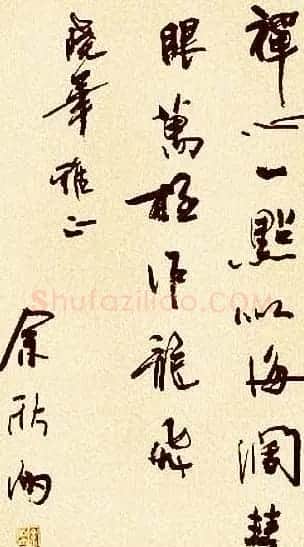 禪心一點似海闊慧
眼萬極作龍飛
曉華雅正
余秋雨
Shufaziliao.COM